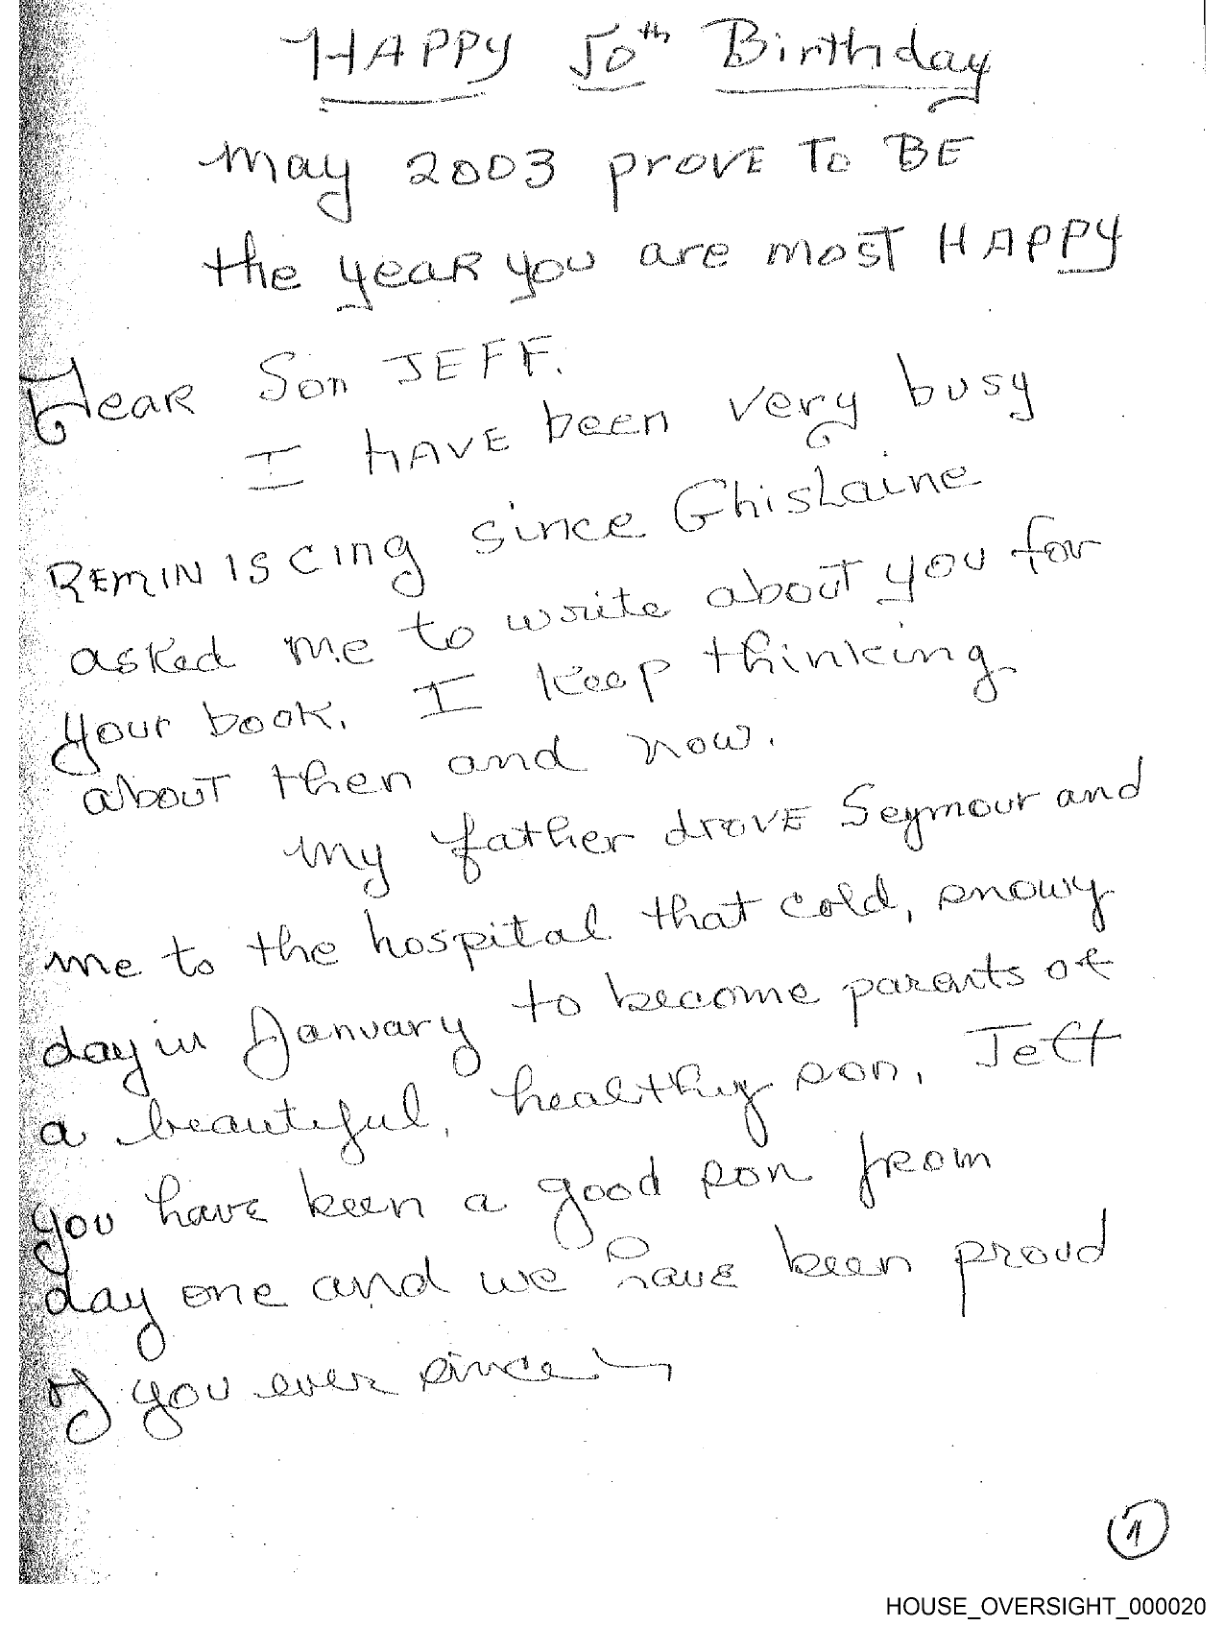 HAPPY 50th Birthday
may 2003 prove To BE
the year you are most HAPPY
Dear Son JEFF.
I HAVE been very busy
REMINISCING since Ghislaine
asked me to write about you for
your book. I keep thinking
about then and now.
my father drove Seymour and
me to the hospital that cold, snowy
day in January to become parents of
a beautiful, healthy son. Jeff
you have been a good son from
day one and we have been proud
of you ever since
1
HOUSE_OVERSIGHT_000020